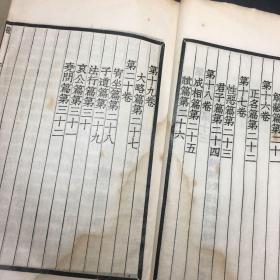 解蔽篇第二十一
第十六卷
正名篇第二十二
第十七卷
性惡篇第二十三
君子篇第二十四
第十八卷
成相篇第二十五
賦篇第二十六
第十九卷
大略篇第二十七
第二十卷
宥坐篇第二十八
子道篇第二十九
法行篇第三十
哀公篇第三十一
堯問篇第三十二